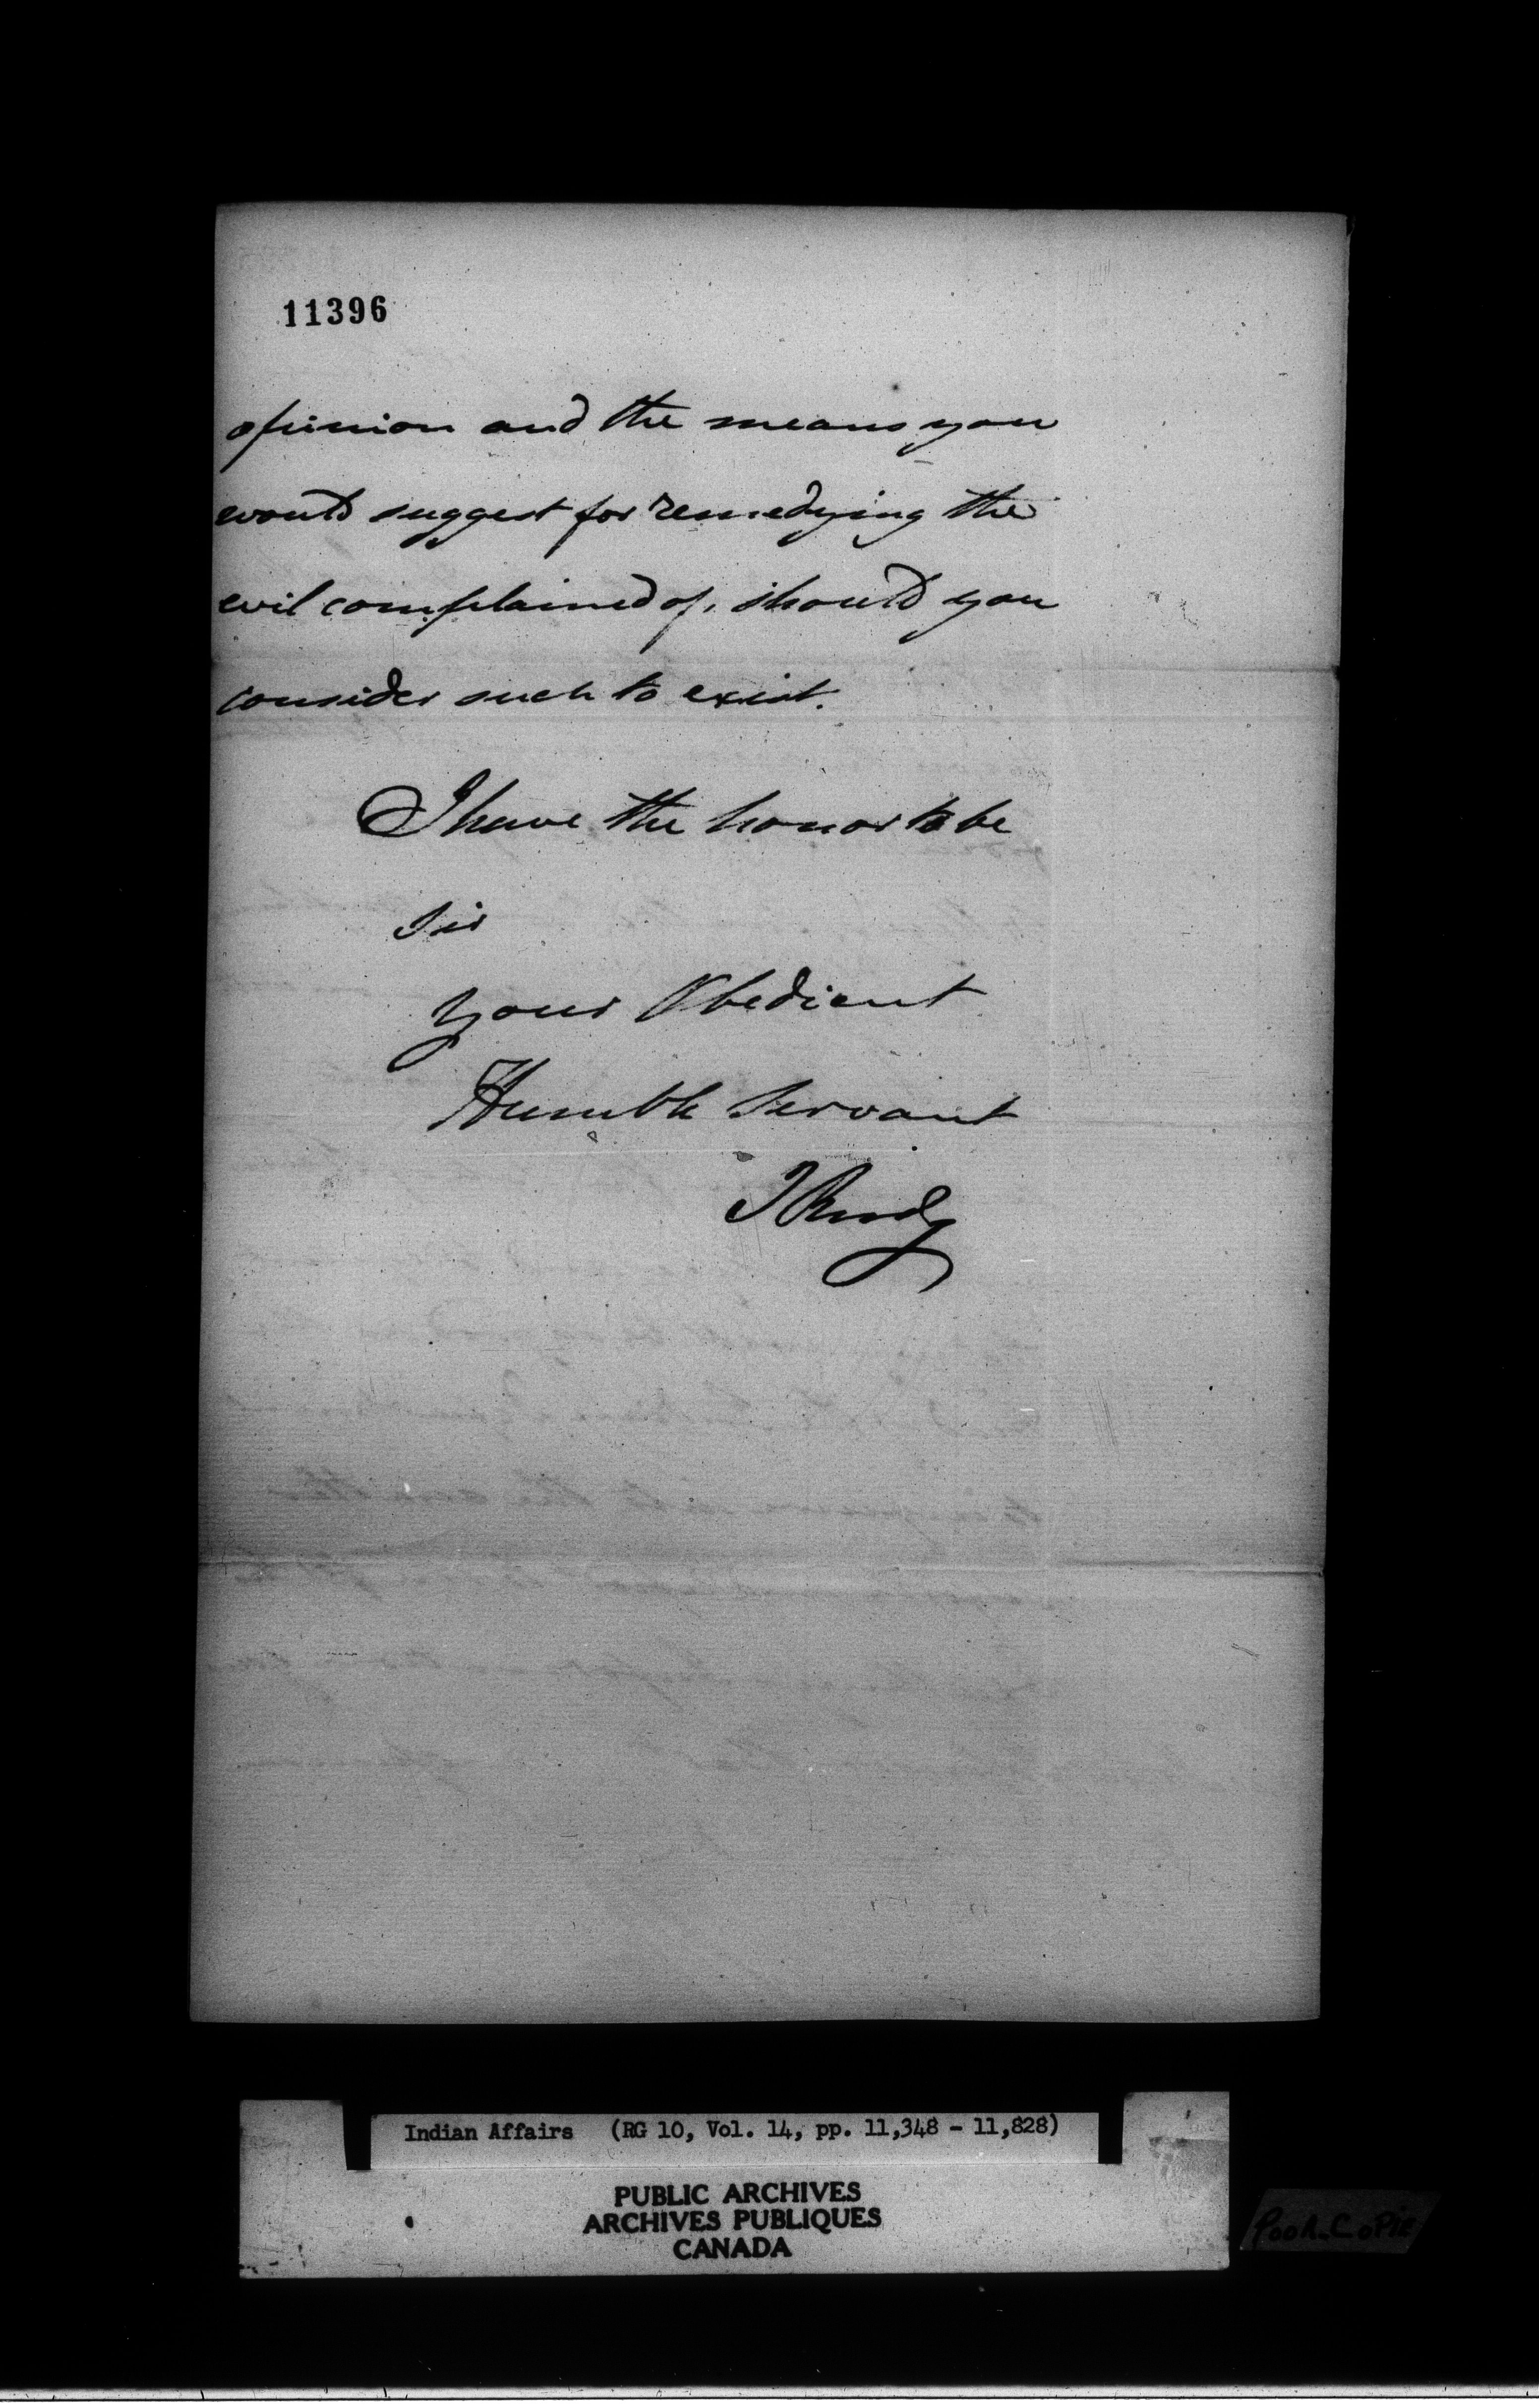 11396
opinion and the means you
would suggest for remedying the
evil complained of, should you
consider such to exist.
I have the honor to be
Sir
Your Obedient
Humble Servant
Indian Affairs (RG 10, Vol. 14, pp. 11,348 - 11,828)
PUBLIC ARCHIVES
ARCHIVES PUBLIQUES
CANADA
POOR COPIE